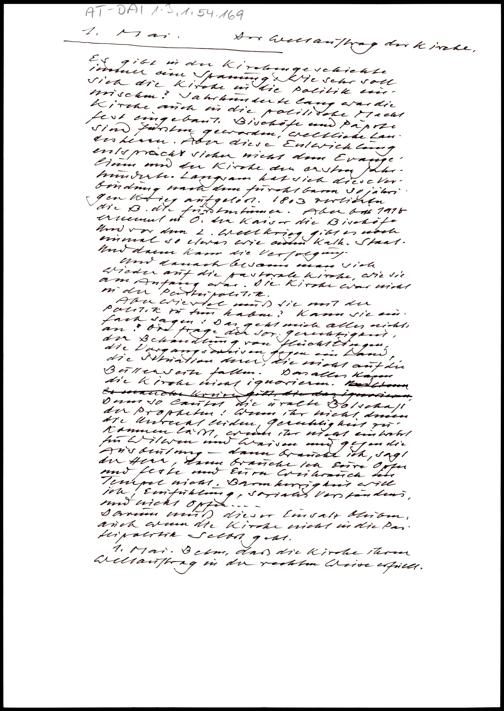 AT-DAI 1.3.1.54.169
1. Mai. Der Weltauftrag der Kirche.
Es gibt in der Kirchengeschichte
immer eine Spannung: Wie sehr soll
sich die Kirche in die Politik ein-
mischen? Jahrhunderte lang war die
Kirche auch in die politische Macht
fest eingebaut. Bischöfe und Päpste
sind Fürsten geworden, weltliche Lan-
desherren. Aber diese Entwicklung
entspricht sicher nicht dem Evange-
lium und der Kirche der ersten Jahr-
hunderte. Langsam hat sich diese Ver-
bindung nach dem furchtbaren 30 jähri-
gen Krieg aufgelöst. 1803 verloren
die B. die Fürstentümer. Aber bis 1918
ernennt in Ö. der Kaiser die Bischöfe
Und vor dem 2. Weltkrieg gibt es noch
einmal so etwas wie einen kath. Staat.
Und dann kam die Verfolgung.
Und danach besann man sich
wieder auf die pastorale Kirche, wie sie
am Anfang war. Die Kirche war nicht
in der Parteipolitik.
Aber wieviel muß sie mit der
Politik zu tun haben? Kann sie ein-
fach sagen: Das geht mich alles nichts
an? Die Frage der soz. Gerechtigkeit,
der Behandlung von Flüchtlingen,
die Vorgangsweisen gegen ein Land,
die Situation derer, die nicht auf die
Butterseite fallen. Das alles kann
die Kirche nicht ignorieren.
Denn so lautet die uralte Botschaft
der Propheten: Wenn ihr nicht denen
die Unrecht leiden, Gerechtigkeit zu-
kommen laßt, wenn ihr nicht eintretet
für Witwen und Waisen und gegen die
Ausbeutung – dann brauche ich, sagt
der Herr, dann brauche ich Eure Opfer
und Feste und Euren Weihrauch im
Tempel nicht. Barmherzigkeit will
ich, Einfühlung, soziales Verständnis,
und nicht Opfer....
Darum muß dieser Einsatz bleiben,
auch wenn die Kirche nicht in die Par-
teipolitik selbst geht.
1. Mai. Beten, daß die Kirche ihren
Weltauftrag in der rechten Weise erfüllt.